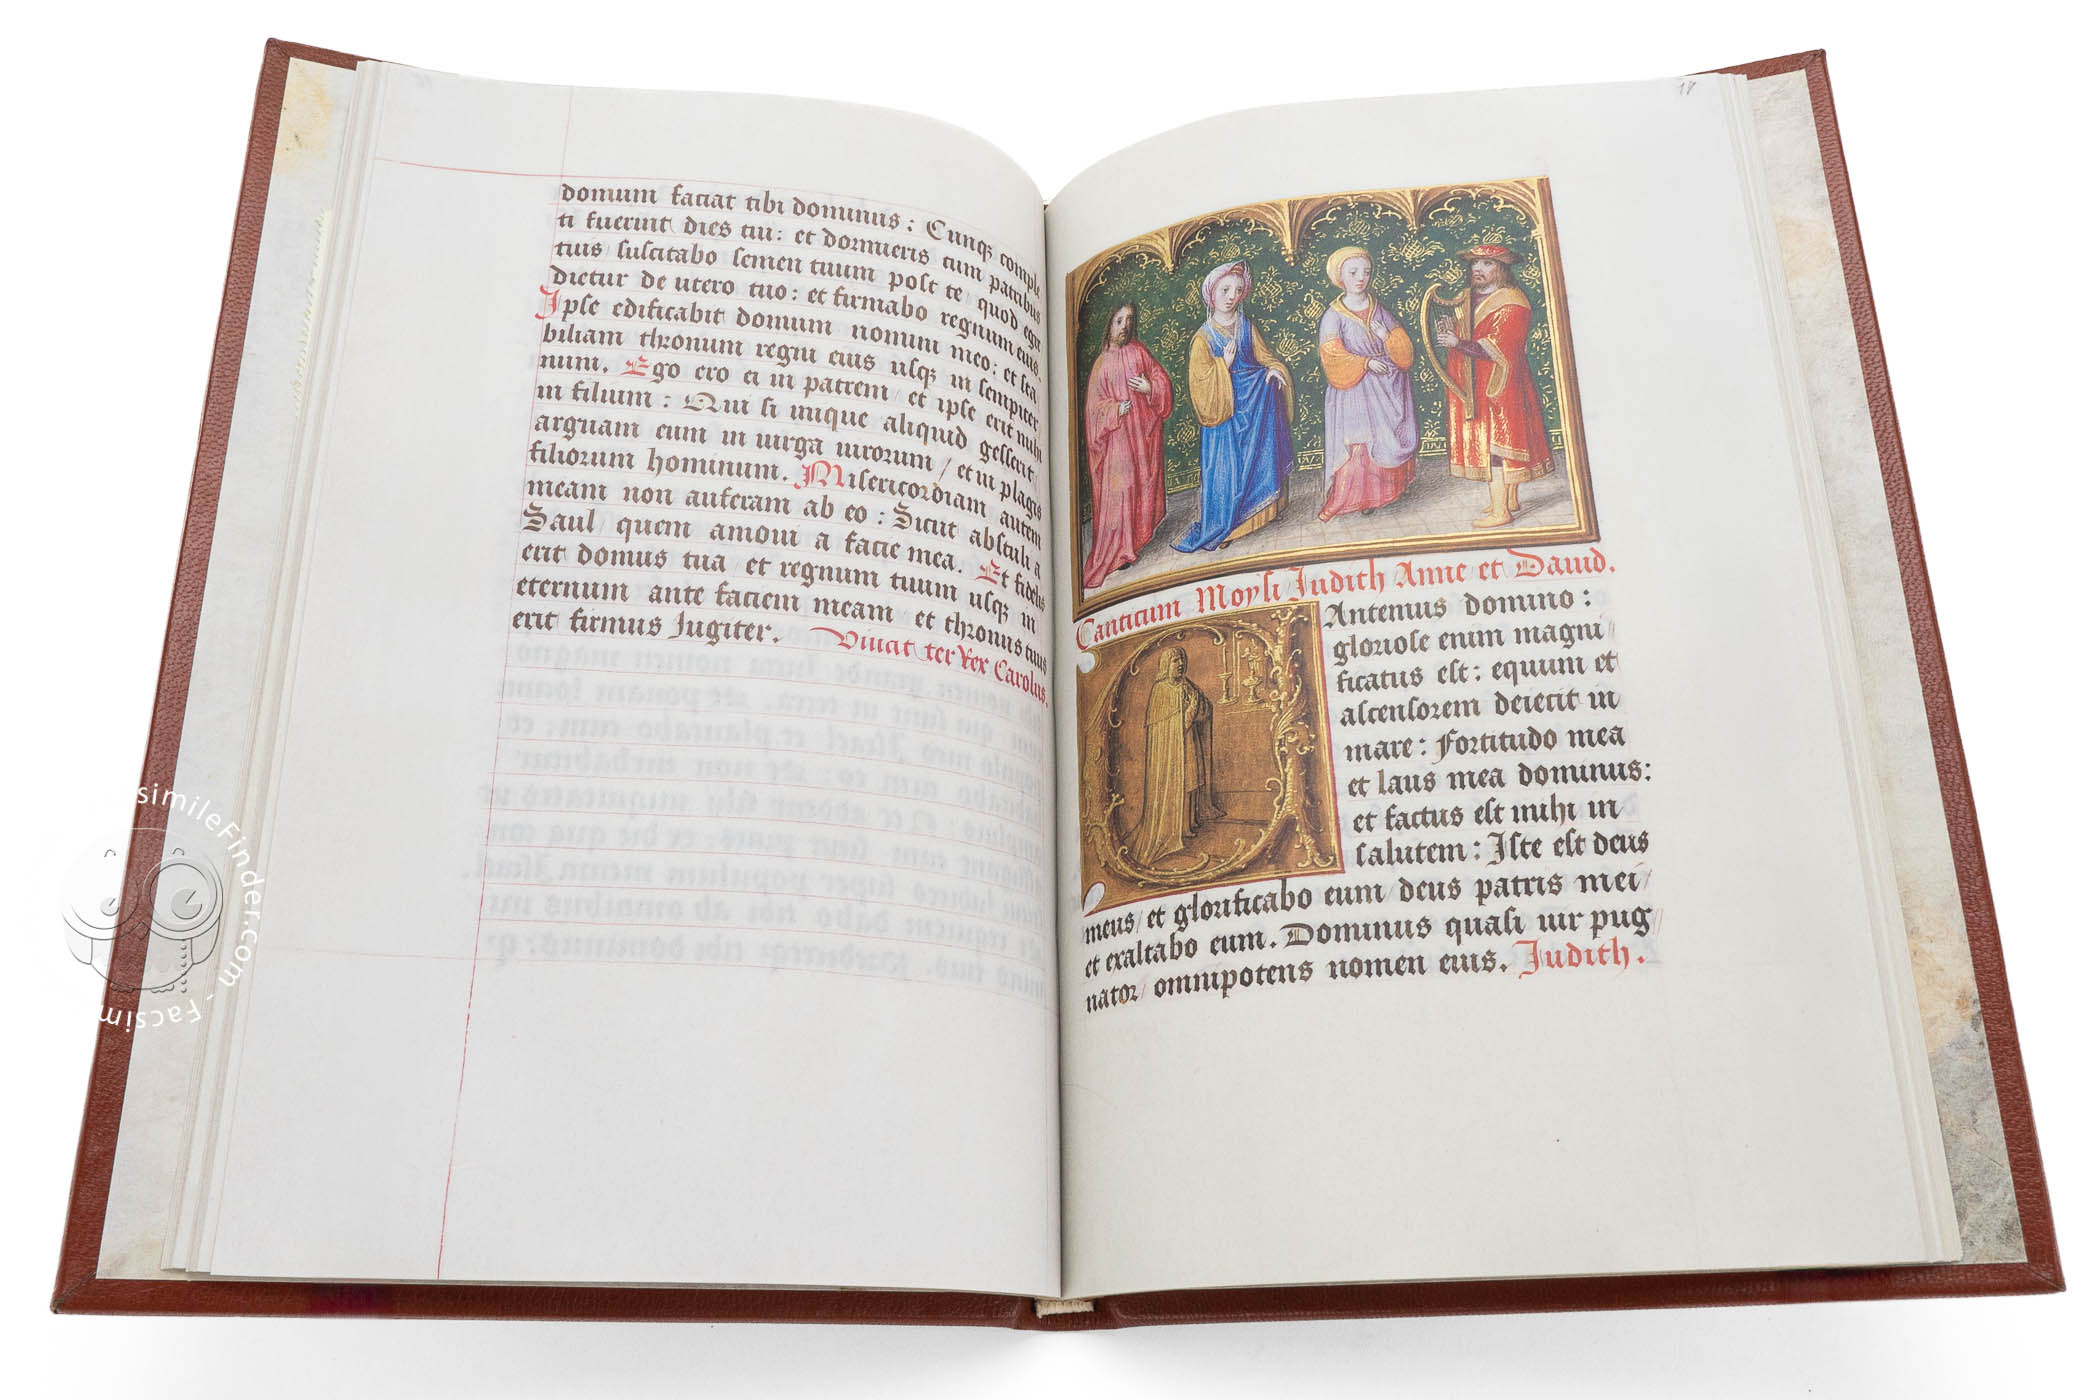 domum faciat tibi dominus: Cunq; comple
ti fuerint dies tui: et dormieris cum patribus
tuis / suscitabo semen tuum post te / quod egre
dietur de utero tuo: et firmabo regnum eius.
Ipse edificabit domum nomini meo: et sta
biliam thronum regni eius usq; in sempiter
num. Ego ero ei in patrem / et ipse erit michi
in filium: Qui si inique aliquid gesserit /
arguam eum in uirga uirorum / et in plagis
filiorum hominum. Misericordiam autem
meam non auferam ab eo: Sicut abstuli a
Saul / quem amoui a facie mea. Et fidelis
erit domus tua et regnum tuum usq; in
eternum ante faciem meam et thronus tuus
erit firmus Jugiter. Viuat ter Rex Carolus.
17
Canticum Moysi Judith Anne et Dauid.
CAntemus domino:
gloriose enim magni/
ficatus est: equum et
ascensorem deiecit in
mare: Fortitudo mea
et laus mea dominus:
et factus est mihi in
salutem: Iste est deus
meus / et glorificabo eum deus patris mei /
et exaltabo eum. Dominus quasi uir pug/
nator / omnipotens nomen eius. Judith.
FacsimileFinder.com - Facsim